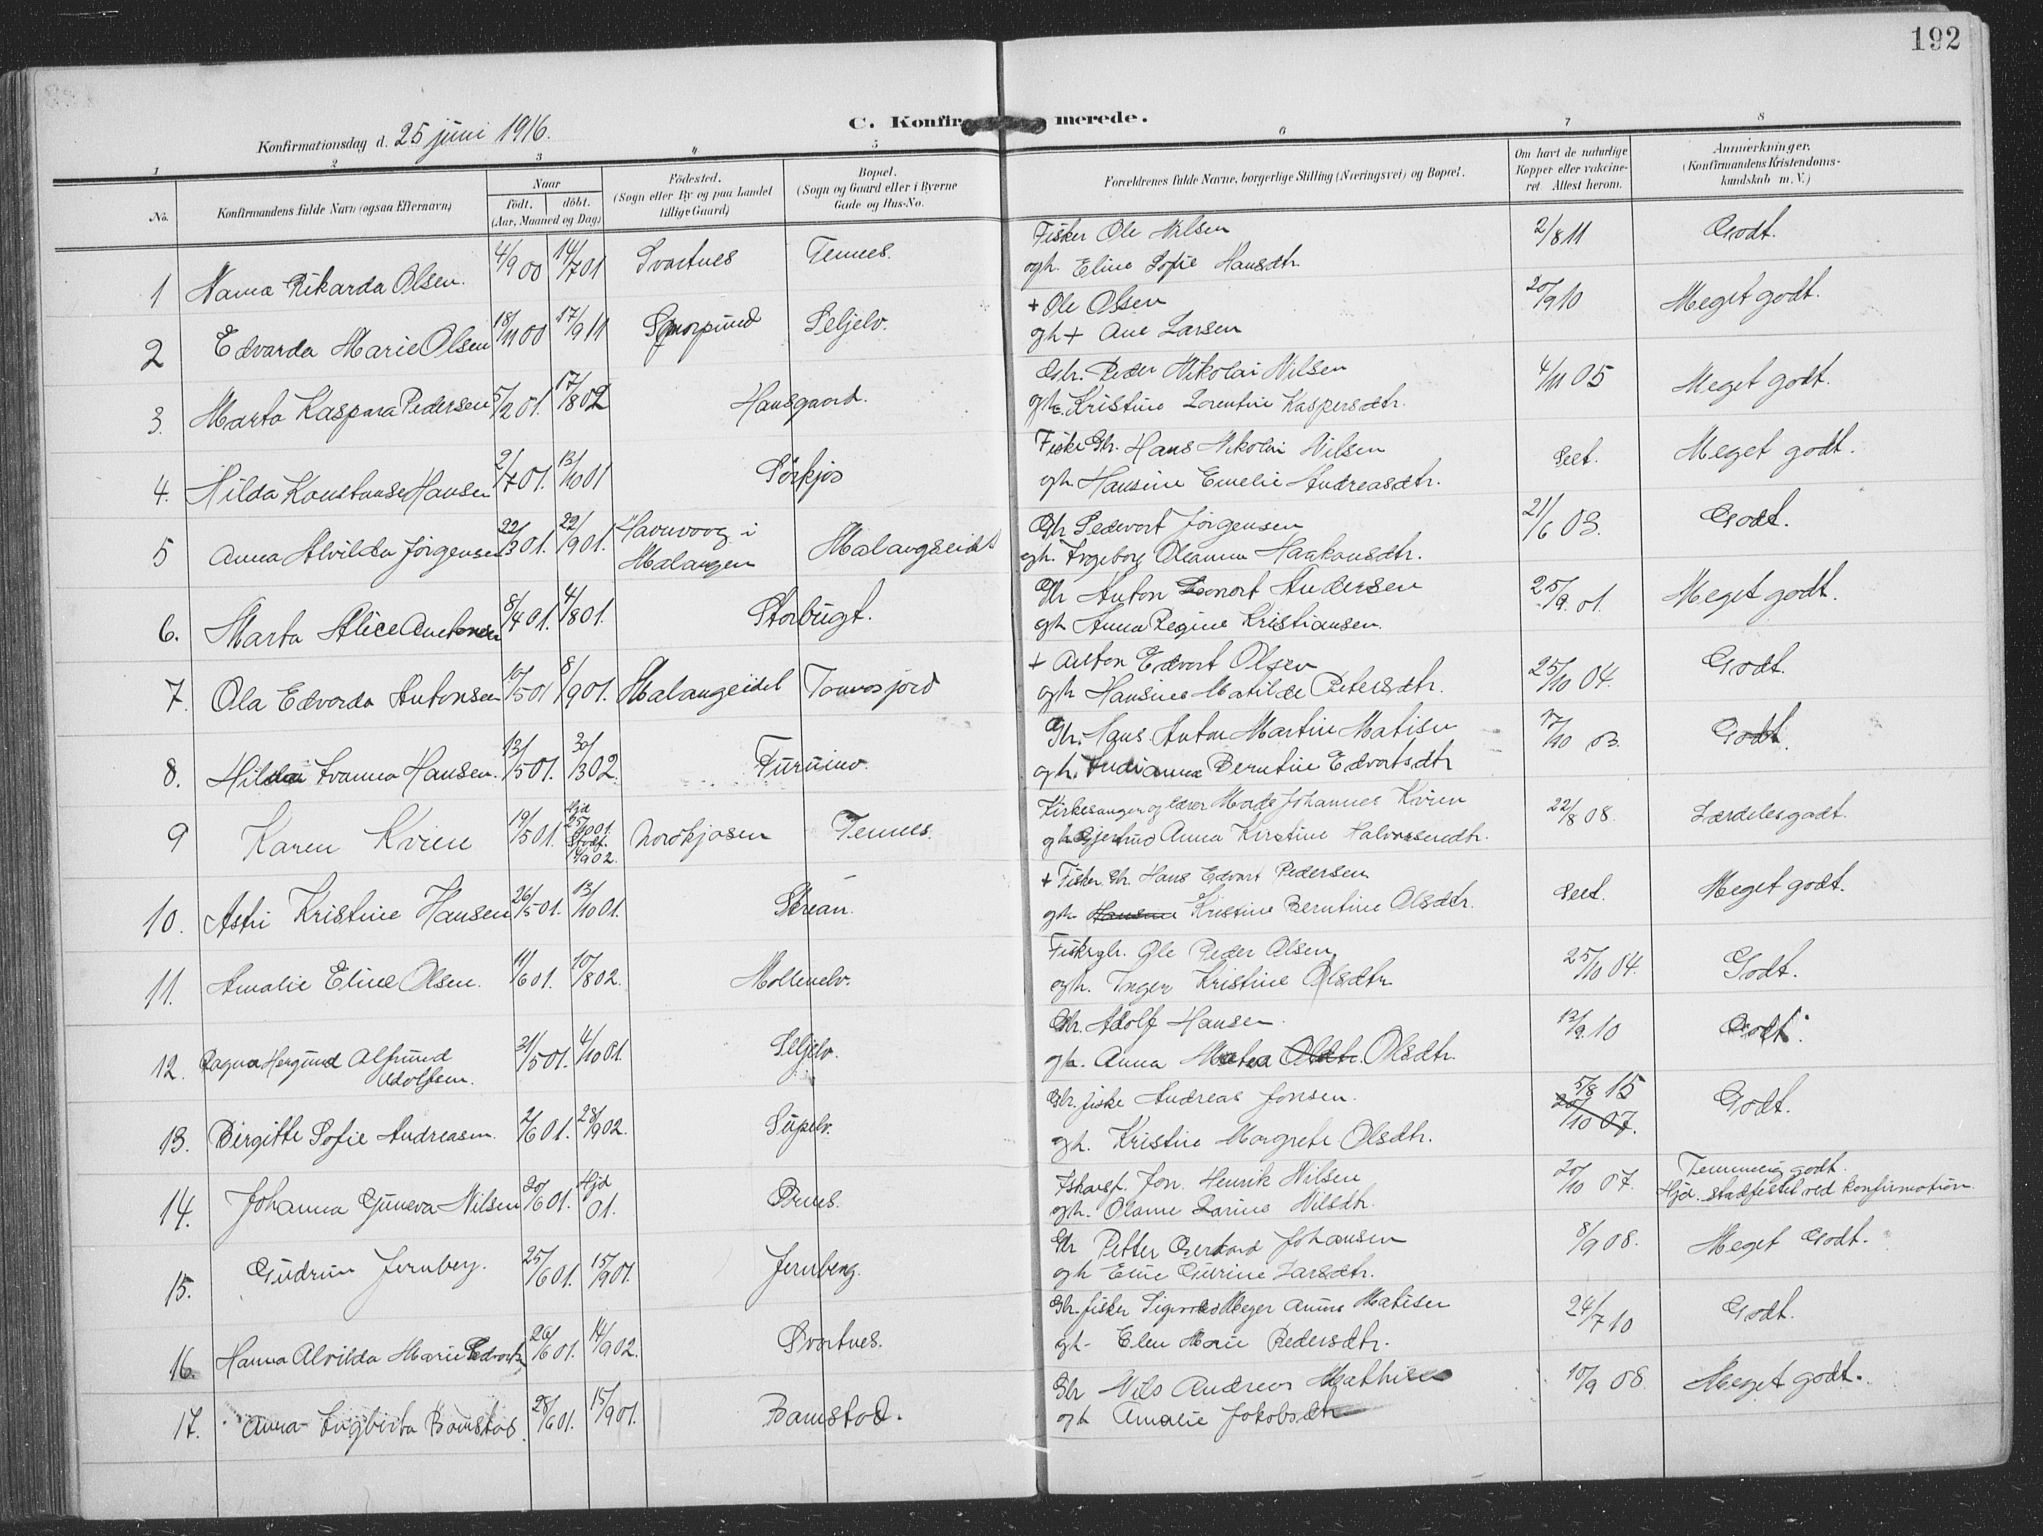 192
C. Konfirmerede.
Konfirmationsdag d. 25 juni 1916.
1 2 3 4 5 6 7 8
No.
Konfirmandens fulde Navn (ogsaa Efternavn)
Naar
Födt. döbt.
(Aar, Maaned og Dag)
Födested.
(Sogn eller By og paa Landet
tillige Gaard)
Bopæl.
(Sogn og Gaard eller i Byerne
Gade og Hus-No.
Forældrenes fulde Navne, borgerlige Stilling (Næringsvei) og Bopæl.
Om havt de naturlige
Kopper eller vakcine-
ret Attest herom.
Anmerkninger.
(Konfirmandens Kristendoms-
kundskab m. V.)
1 Nanna Rikarda Olsen. 4/9 00 14/7 01 Svartnes Tennes. Fisker Ole Nilsen 2/8 11 Godt.
ogh. Eline Sofie Hansdtr.
2 Edvarda Marie Olsen 18/11 00 17/9 11 Seljelv. + Ole Olsen 20/9 10 Meget godt.
gh + Ane Larsen
3. Marta Kaspara Pedersen 5/2 01. 17/8 02 Hansgaard. Gbr. Peder Nikolai Nilsen 4/11 05 Meget godt.
gh. Kristine Lorentine Kaspersdtr.
4. Hilda Konstanse Hansen 2/7 01. 13/10 01 Sörkjos Fisker Gbr. Hans Nikolai Nilsen Seet. Meget godt.
ogh. Hansine Emelie Andreasdtr.
5 Anna Alvilda Jörgensen 22/3 01. 22/9 01. Havnvaag i Malangseidet Gbr Sedevart Jörgensen 21/6 03. Godt.
Malangen ogh. Ingeborg Oleanna Haakonsdtr.
6. Marta Alice Antonsen 8/4 01. 4/8 01. Storbugt. Gbr Anton Leonort Andersen 25/9 01. Meget godt.
gh Anna Regine Kristiansen.
7. Ola Edvarda Antonsen 10/5 01 8/9 01. Malangseidet Tomasjord + Anton Edvart Olsen 25/10 04. Godt.
ogh Hansine Matilde Petersdtr.
8. Hilda Ivanna Hansen. 13/5 01. 30/3 02. Furumo. Gbr. Hans Anton Martin Matisen 17/10 03. Godt.
ogh. Andrianna Berntine Edvartsdtr
9 Karen Kvien 19/5 01. Hjd 25/ 01. Stadf. 02. Nordkjosen Tennes. Kirkesanger og lærer Mads Johannes Kvien 22/8 08. Særdeles godt.
gh Gjertrud Anna Kirstine Halvorsendtr.
10. Astri Kristine Hansen 26/5 01. 13/10 01. Slrean. + Fisker Gbr. Hans Edvart Pedersen Seet. Meget godt.
gh. Hansine Kristine Berntine Olsdtr.
11. Amalie Eline Olsen. 11/6 01. 10/8 02. Mollenelv. Fiskrgbr. Ole Peder Olsen 25/10 04. Godt.
ogh. Inger Kristine Olsdtr
12. Ragna Hergund Alfsund 31/5 01. 4/10 01. Seljelv. Gbr. Adolf Hansen. 13/9 10 Godt.
Adolfsen. gh. Anna Matea Oldtr. Olsdtr.
13. Birgitte Sofie Andreasen. 2/6 01. 28/9 02. Süpelv. Gbr. fiske Andreas Jonsen. 5/8 15 Godt.
gh. Kristine Margrete Olsdtr. 20/10 07.
14. Johanna Guneva Nilsen 20/6 01. Hjd 01. Ornes. Jon. Henrik Nilsen 20/10 07. Temmelig godt.
gh. Olame Larine Nilsdtr. Hjd. stadfestet ved konfirmation
15. Gudrun Jernberg. 25/6 01. 15/9 01. Jernberg. Gbr Petter Gerhard Johansen 8/9 08. Meget Godt.
ogh Eline Gurine Larsdtr.
16. Hanna Alvilda Marie 26/6 01. 14/9 02. Svartnes. Gbr. fisker Meyer Matisen 24/7 10 Godt.
gh. Elen Marie Pedersdtr.
17. Anna Ingbirta Bamstad. 28/6 01. 15/9 01. Bamstad. Gbr Nils Andreas Mathisen 10/9 08 Meget godt.
ogh Amalie Jakobsdtr